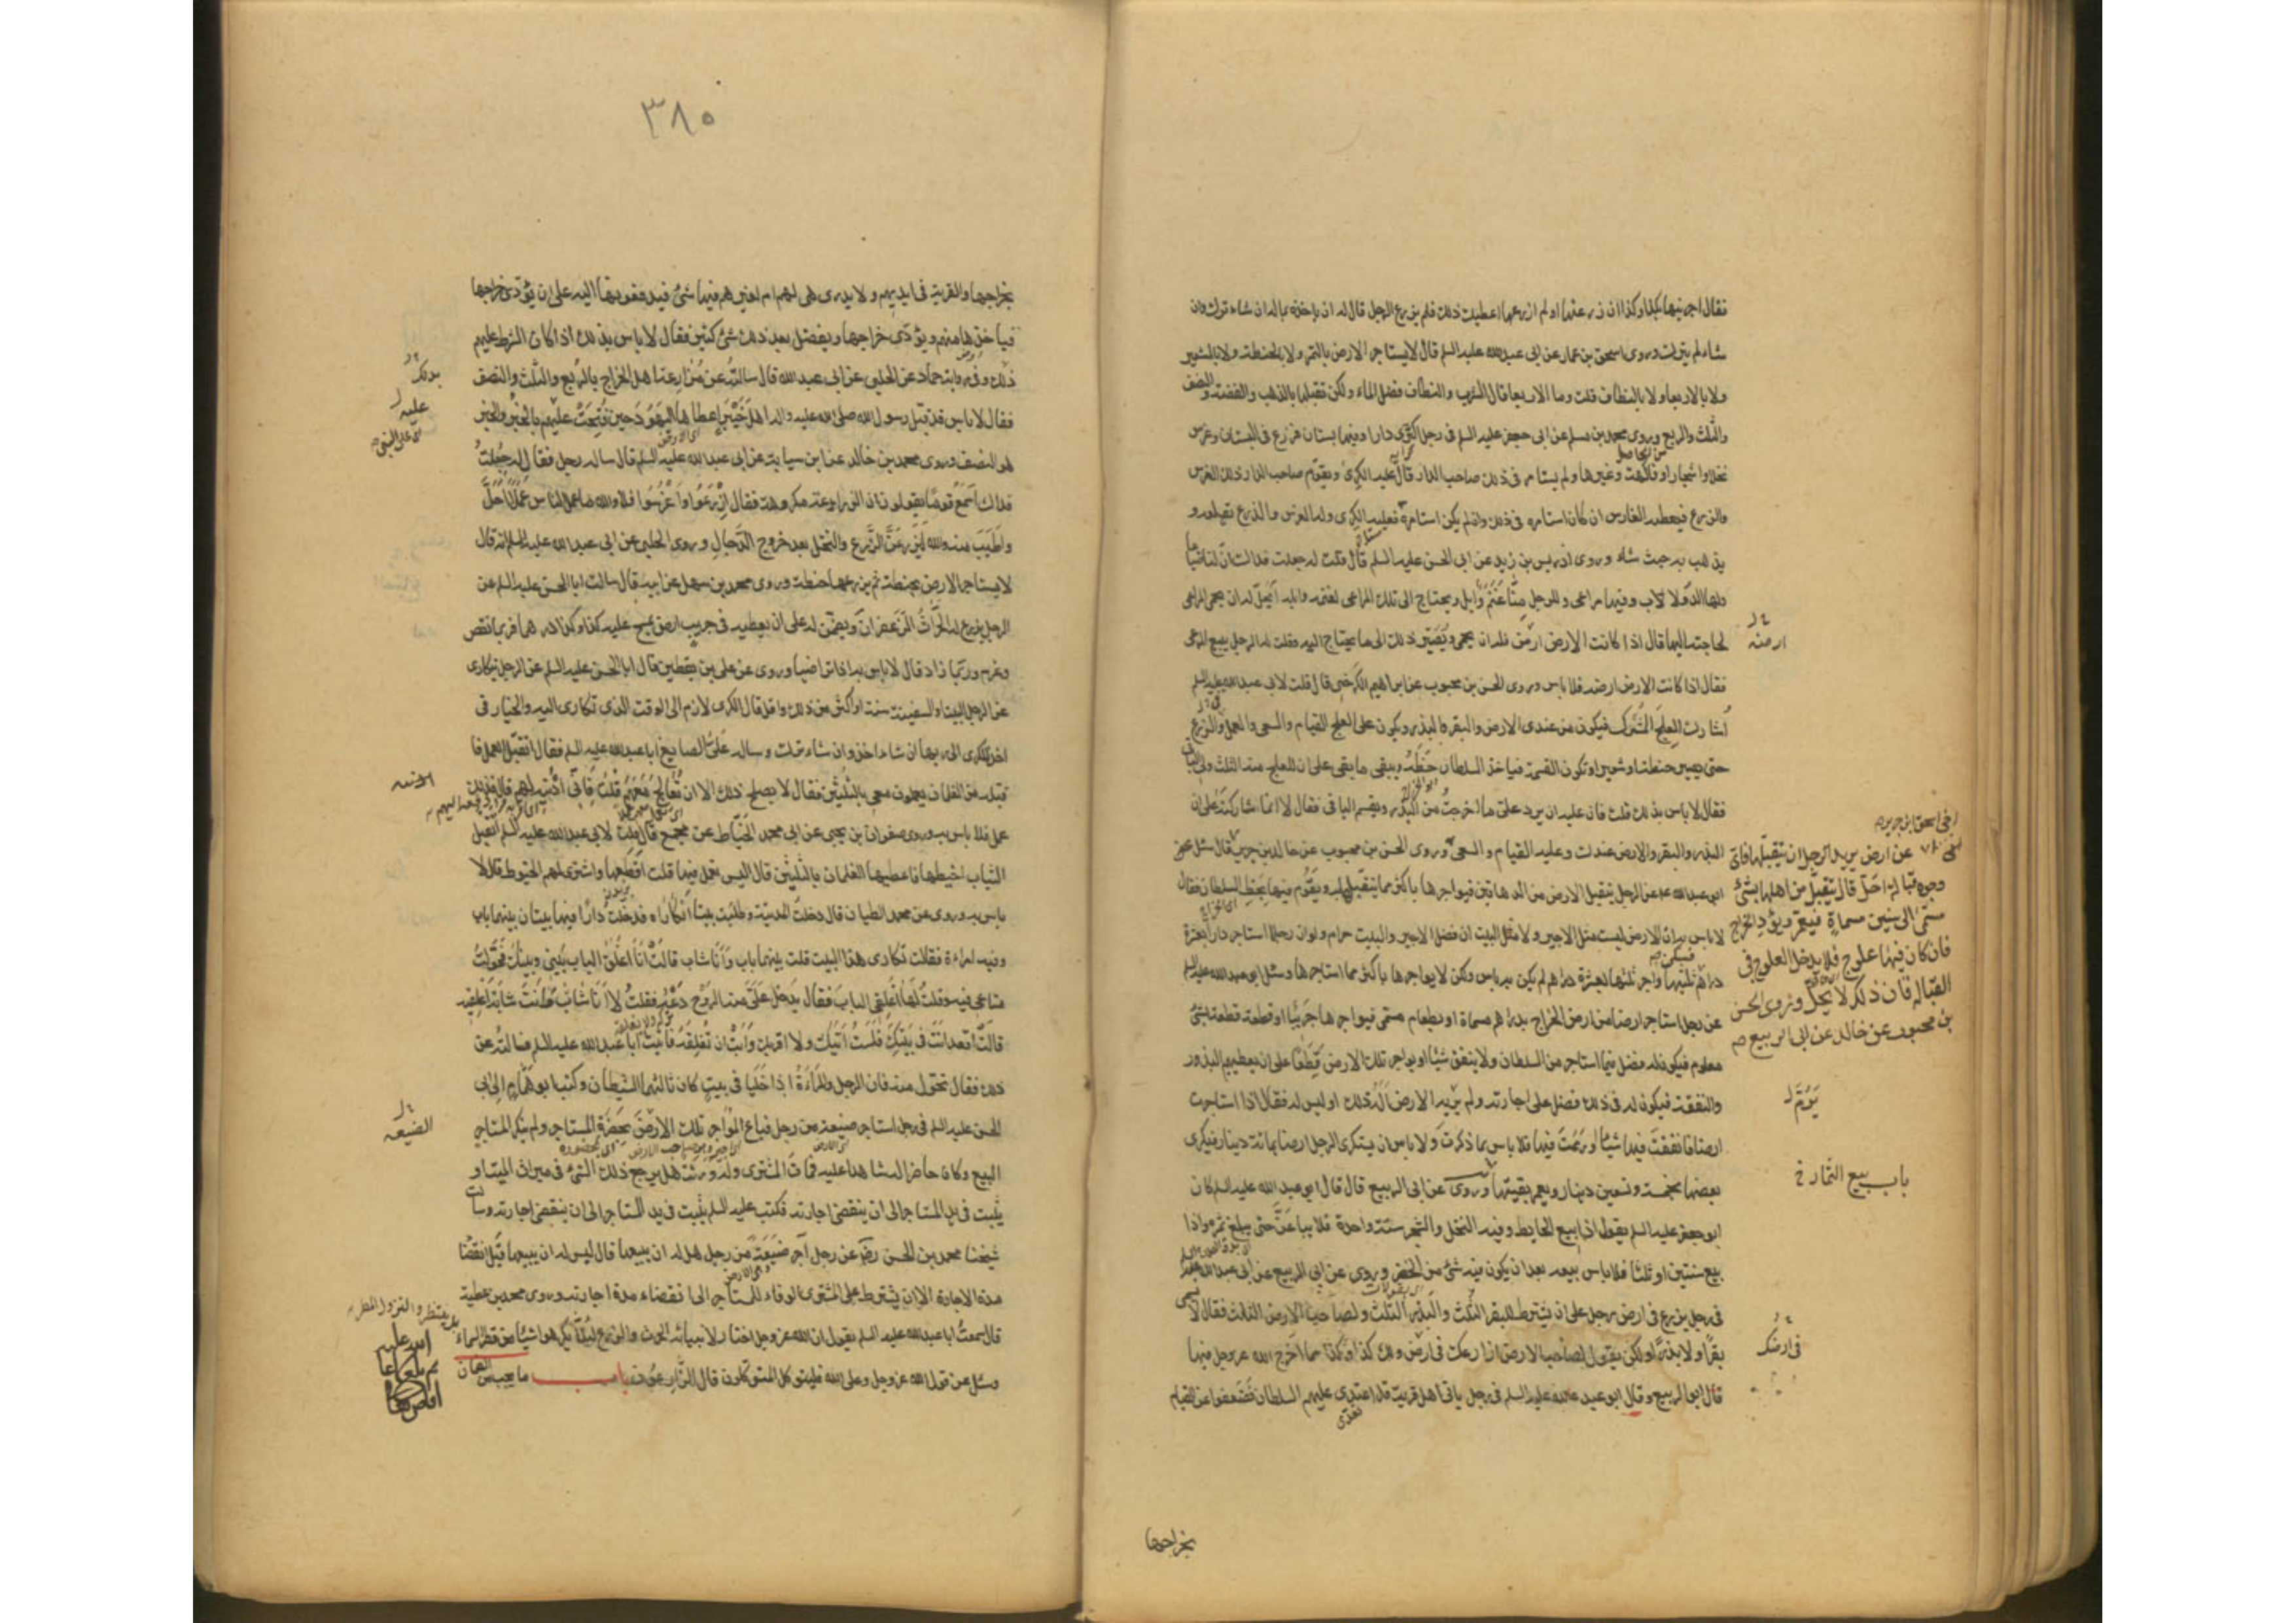 فقال اجرنيها بكذا وكذا ان زرعتها او لم ازرعها اعطيك ذلك فلم يزرع الرجل قال له ان ياخذه بماله ان شاء ترك وان
شاء لم يترك وروى اسحق بن عمار عن ابى عبدالله عليه السلم قال لا يستاجر الارض بالتمر ولا بالحنطة ولا بالشعير
ولا بالاربعاء ولا بالنطاف قلت وما الاربعا قال الشرب والنطاف فضل الماء ولكن تقبلها بالذهب والفضة والنصف
والثلث والربع وروى محمد بن مسلم عن ابى جعفر عليه السلم فى رجل اكترى دارا وفيها بستان فزرع فى البستان وغرس
نخلا واشجارا وفاكهة وغيرها ولم يستامر فى ذلك صاحب الدار قال عليه الكرى ويقوم صاحب الدار ذلك الغرس
والزرع فيعطيه الغارس ان كان استامره فى ذلك وان لم يكن استامره فعليه الكرى وله الغرس والزرع يقلعه و
يذهب به حيث شاء وروى ادريس بن زيد عن ابى الحسن عليه السلم قال قلت له جعلت فداك ان لنا ضياعا
ولها الدولاب وفيها مراعى وللرجل منا غنم وابل ويحتاج الى تلك المراعى لغنمه وابله ايحل له ان يحمى المراعى
لحاجته اليها قال اذا كانت الارض ارضه فله ان يحمى ويصير ذلك الى ما يحتاج اليه وقلت له الرجل يبيع المرعى
فقال اذا كانت الارض ارضه فلا باس وروى الحسن بن محبوب عن ابراهيم الكرخى قال قلت لابى عبد الله عليه السلم
أشارك العلج المشرك فيكون من عندى الارض والبقر والبذر ويكون على العلج القيام والسعى والعمل والزرع
حتى يصير حنطة وشعيرا وتكون القسمة فياخذ السلطان حظه ويبقى ما بقى على ان للعلج منه الثلث ولى الباقى
فقال لا باس بذلك قلت فان عليه ان يرد على ما اخرجت من البذر ويقسم الباقى فقال لا انما شاركته على ان
البذر والبقر والارض عندك وعليه القيام والسعى وروى الحسن بن محبوب عن خالد بن جرير قال سئل
ابو عبدالله عن الرجل يتقبل الارض من الدهاقين فيواجرها باكثر مما يتقبلها به ويقوم فيها بحظ السلطان فقال
لا باس به ان الارض ليست مثل الاجير ولا مثل البيت ان فضل الاجير والبيت حرام ولو ان رجلا استاجر دارا بعشرة
دراهم فسكن ثلثيها واجر ثلثها بعشرة دراهم لم يكن به باس ولكن لا يواجرها باكثر مما استاجرها وسئل ابو عبد الله عليه السلم
عن رجل استاجر ارضا من ارض الخراج بدراهم مسماة او بطعام مسمى فيواجرها جريبا او قطعة قطعة بشئ
معلوم فيكون له فضل فيما استاجر من السلطان ولا ينفق شيئا او يواجر تلك الارض قطعا على ان يعطيهم البذر
والنفقة فيكون له فى ذلك فضل على اجارته ولم يزيد الارض اله ذلك او ليس له فقال اذا استاجرت
ارضا فانفقت فيها شيئا او رممت فيها فلا باس بما ذكرت ولا باس ان يستكرى الرجل ارضا بمائة دينار فيكرى
بعضها بخمسة وتسعين دينارا ويعمر بقيتها وروى عن ابى الربيع قال قال ابو عبد الله عليه السلم كان
ابو جعفر عليه السلم يقول اذا بيع الحايط وفيه النخل والشجر سنة واحدة فلا يباعن حتى يبلغ ثمره واذا
بيع سنتين او ثلثا فلا باس ببيعه بعد ان يكون فيه شئ من الخضر وروى عن ابى الربيع عن ابى عبد الله
فى رجل يزرع فى ارض رجل على ان يشترط للبقر الثلث والبذر الثلث ولصاحب الارض الثلث فقال لا يسمى
بقرا ولا بذرا ولكن يقول لصاحب الارض ازارعك فى ارضك ولك كذا وكذا مما اخرج الله عز وجل منها
قال ابو الربيع وقال ابو عبد الله عليه السلم فى رجل ياتى اهل قرية قد اعتدى عليهم السلطان فضعفوا عن القيام
بخراجها
ارضه
عن ارض يريد الرجل ان يتقبلها فاى
وجوه القبالة احل قال يتقبل من اهلها بشئ
مسمى الى سنين مسماة فيعمر ويؤدى الخراج
فان كان فيها علوج فلا يدخل العلوج فى
القبالة فان ذلك لا يحل وروى الحسن
بن محبوب عن خالد عن ابى الربيع
باب بيع الثمار
فى ارضك
٣٨٠
بخراجها والقرية فى ايديهم ولا يدرى هى لهم ام لغيرهم فيها شئ فيدفعونها اليه على ان يؤدى خراجها
فياخذها منهم ويؤدى خراجها ويفضل بعد ذلك شئ كثير فقال لا باس بذلك اذا كان الشرط عليهم
ذلك وفى رواية حماد عن الحلبى عن ابى عبد الله قال سالته عن مزارعة اهل الخراج بالربع والثلث والنصف
فقال لا باس قد قبل رسول الله صلى الله عليه واله اهل خيبر اعطاها اليهود حين فتحت عليهم بالخبر والخبر
هو النصف وروى محمد بن خالد عن ابن سيابة عن ابى عبد الله عليه السلم قال ساله رجل فقال له جعلت
فداك اسمع قوما يقولون ان الزراعة مكروهة فقال ازرعوا واغرسوا فلا والله ما عمل الناس عملا احل
واطيب منه والله ليزرعن الزرع والنخل بعد خروج الدجال وروى الحلبى عن ابى عبد الله عليه السلم انه قال
لا يستاجر الارض بحنطة ثم يزرعها حنطة وروى محمد بن سهل عن ابيه قال سالت ابا الحسن عليه السلم عن
الرجل يزرع له الحراث الزعفران ويضمن له على ان يعطيه فى جريب ارض يمسح عليه كذا وكذا درهما فربما نقص
وغرم وربما زاد قال لا باس به اذا تراضيا وروى عن على بن يقطين قال ابا الحسن عليه السلم عن الرجل يتكارى
من الرجل البيت او السفينة سنة او اكثر من ذلك واقل قال الكرى لازم الى الوقت الذى تكارى اليه والخيار فى
اخذ الكرى الى ربها ان شاء اخذ وان شاء ترك وساله على الصايغ ابا عبدالله عليه السلم فقال اتقبل العمل فا
قبله من الغلمان يعملون معى بالثلثين فقال لا يصلح ذلك الا ان تعالج معهم قلت فانى اذيبه لهم قال فذلك
عمل فلا باس به وروى صفوان بن يحيى عن ابى محمد الخياط عن مجمع قال قلت لابى عبد الله عليه السلم اتقبل
الثياب اخيطها ثم اعطيها الغلمان بالثلثين قال اليس تعمل فيها قلت اقطعها واشترى لهم الخيوط قال لا
باس به وروى عن محمد الطيان قال دخلت المدينة وطلبت بيتا اتكاراه فدخلت دارا فيها بيتان بينهما باب
وفيه امراءة فقالت تكارى هذا البيت قلت بينهما باب وانا شاب قالت انا اغلق الباب بينى وبينك فحولت
متاعى فيه وقلت لها اغلقى الباب فقال يدخل على منه الروح دعه فقلت لا انا شاب وانت شابة اغلقيه
قالت اقعد انت فى بيتك فلست اتيك ولا اقربك وابت ان تغلقه فاتيت ابا عبد الله عليه السلم فسالته عن
ذلك فقال تحول منه فان الرجل والمراءة اذا خليا فى بيت كان ثالثهما الشيطان وكتب ابو همام الى ابى
الحسن عليه السلم فى رجل استاجر ضيعة من رجل فباع المواجر تلك الارض بحضرة المستاجر ولم ينكر المستاجر
البيع وكان حاضرا له شاهدا عليه فمات المشترى وله ورثة هل يرجع ذلك الشئ فى ميراث الميت او
يثبت فى يد المستاجر الى ان ينقضى اجارته فكتب عليه السلم يثبت فى يد المستاجر الى ان ينقضى اجارته وسالت
شيخنا محمد بن الحسن رضى عن رجل آجر ضيعة من رجل هل له ان يبيعها قال ليس له ان يبيعها قبل انقضاء
مدة الاجارة الا ان يشترط على المشترى الوفاء للمستاجر الى انقضاء مدة اجارته وروى محمد بن عطية
قال سمعت ابا عبد الله عليه السلم يقول ان الله عز وجل اختار لانبيائه الحرث والزرع لئلا يكرهوا شيئا من قطر السماء
وسئل عن قول الله عز وجل وعلى الله فليتوكل المتوكلون قال الزارعون باب ما يجب من الضمان
عليه
الضيعه